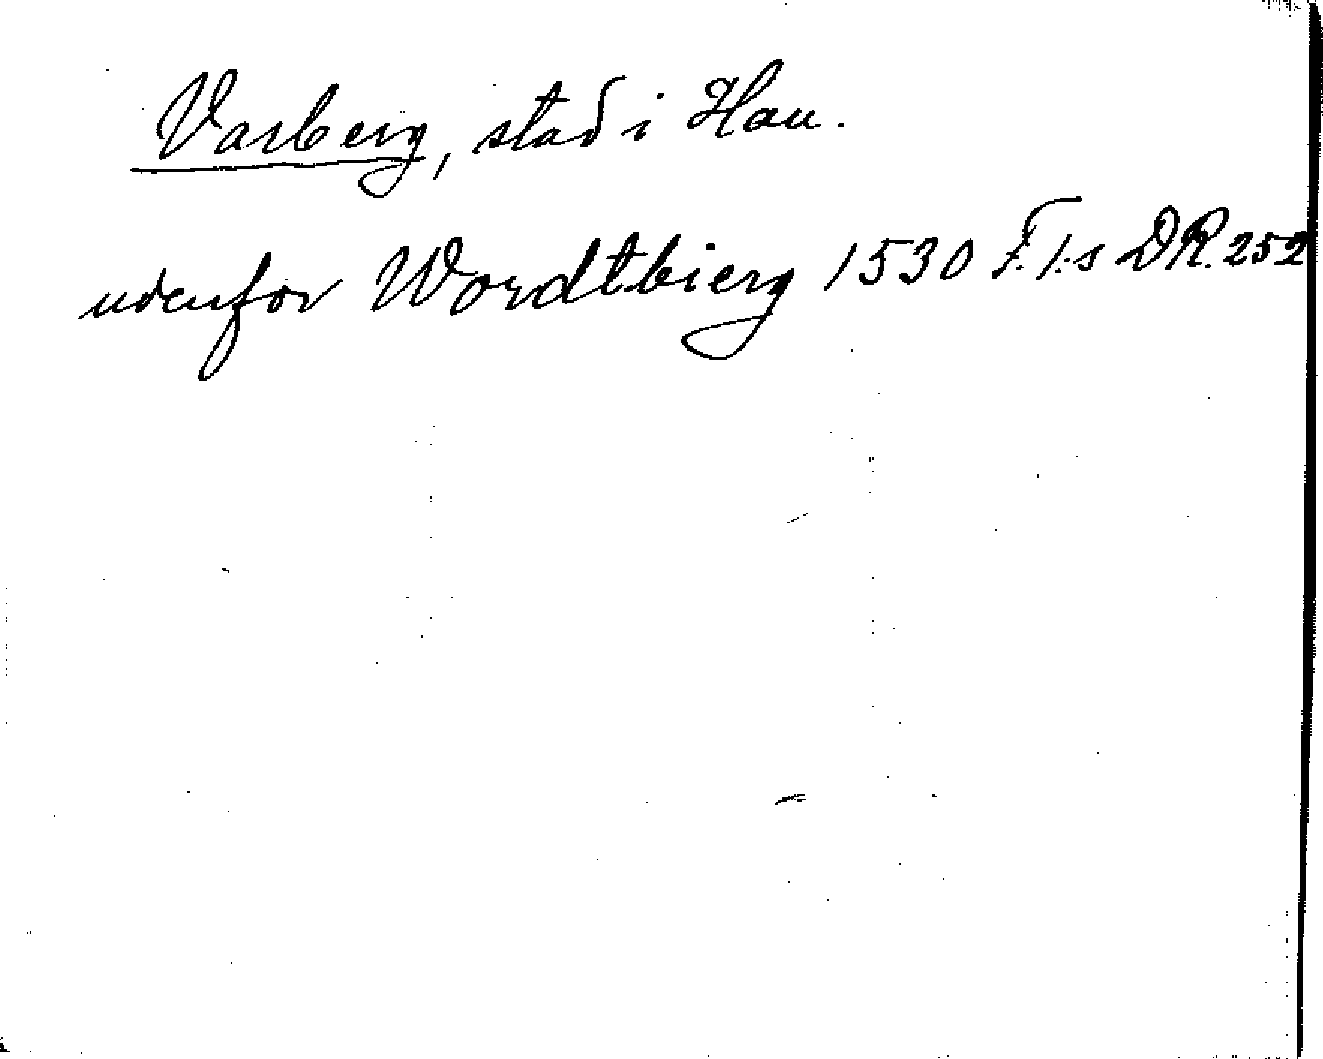 Varberg, stad i Hall.
udenfor Wordtbierg 1530 F. I:s DR. 252